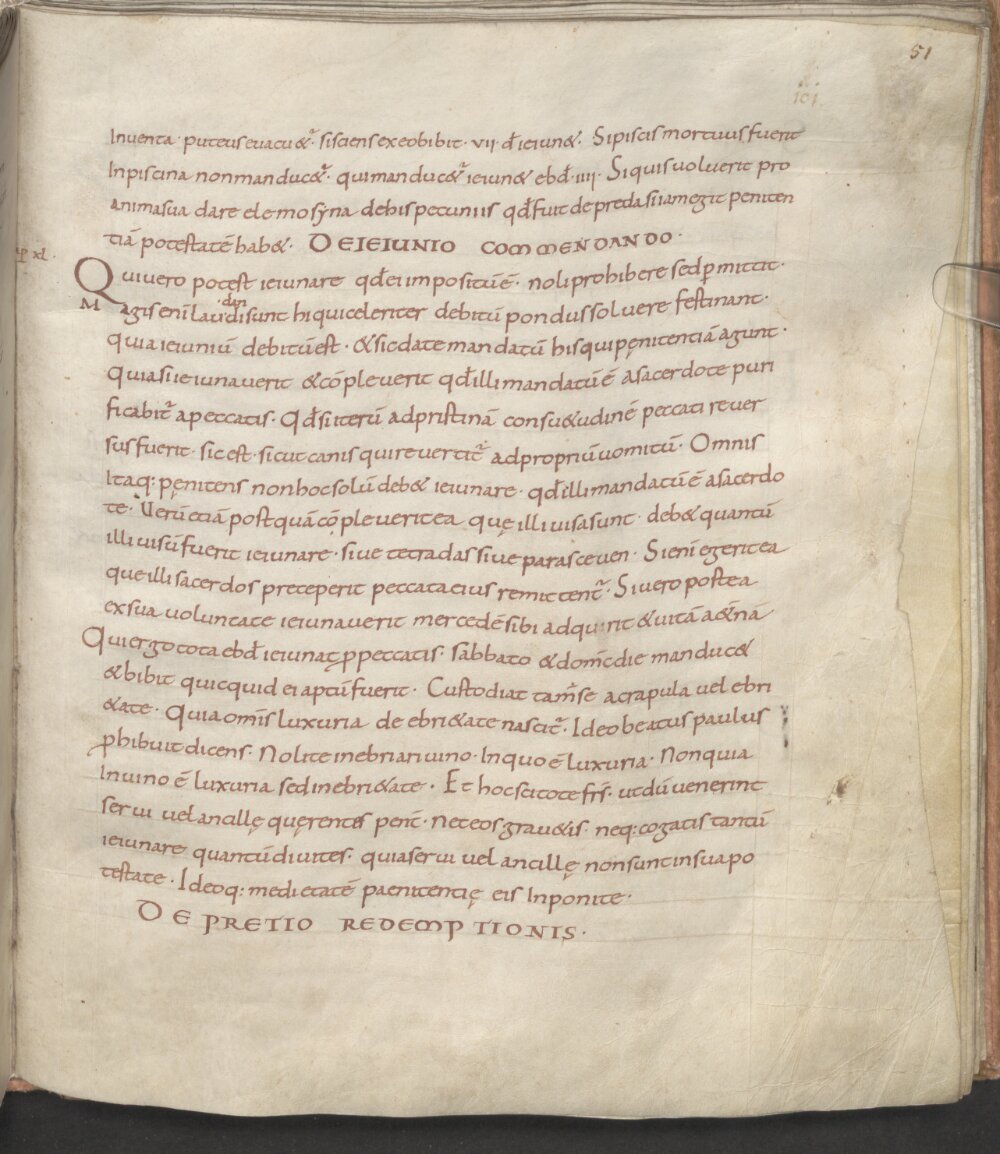 51
101
Inventa · puteus euacu&ur̄ · si sciens ex eo bibit · vii · đ ieiun& · Si piscis mortuus fuerit
In piscina non manduc&ur̄ · qui manduc&ur̄ ieiun& ebđ · iiii · Si quis uoluerit pro
anima sua dare elemosyna de his pecuniis qđ fuit de preda si iam egit peniten
tiā potestatē hab& · DE IEIUNIO COMMENDANDO ·
xl
Qui vero potest ieiunare qđ ei impositū ē · noli prohibere sed p̄mittit ·
dan
Magis enī laudi sunt hi qui celeriter debitū pondus soluere festinant ·
quia ieiuniū debitū est · & sic date mandatū his qui pęnitentiā agunt ·
Quia si ieiunauerit & cōpleuerit qđ illi mandatū ē a sacerdote puri
ficabit̄ a peccatis · Qđ si iterū ad pristinā consu&udinē peccati reuer
sus fuerit · sic est · sicut canis qui reuertit̄ ad propriū uomitū · Omnis
Itaq: pęnitens non hoc solū deb& ieiunare · qđ illi mandatū ē a sacerdo
te · Uerū etiā postquā cōpleuerit ea quę illi uisa sunt · deb& quantū
illi uisū fuerit ieiunare · siue tetradas siue parasceuen · Si enī egerit ea
que illi sacerdos preceperit peccata eius remittent̄ · Si uero postea
ex sua uoluntate ieiunauerit mercedē sibi adquirit & uitā a&nā
Qui ergo tota ebđ ieiunat p̱ peccatis · sabbato & dom̄c die manduc&
& bibit quicquid ei aptū fuerit · Custodiat tam̄ se a crapula uel ebri
&ate · Quia om̄is luxuria de ebri&ate nascit̄ · Ideo beatus paulus
p̱hibuit dicens · Nolite inebriari uino · In quo ē luxuria · Non quia
In uino ē luxuria sed in ebri&ate · Et hoc scitote fr̄s · ut dū uenerint
serui uel ancillę quęrentes penīt · Ne te eos grau&is · neq: cogatis tantū
ieiunare quantū diuites · quia serui uel ancillę non sunt in sua po
testate · Ideoq: medietatē paenitentię eis Inponite ·
DE PRETIO REDEMPTIONIS ·